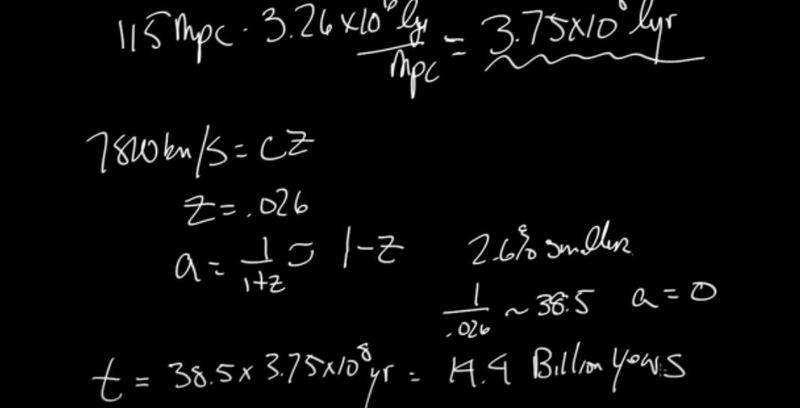 115 Mpc · 3.26×10⁶ ly/Mpc = 3.75×10⁸ lyr
7800 km/s = cz
z = .026
a = 1/1+z ≈ 1-z 2.6% smaller
1/.026 ~ 38.5 a = 0
t = 38.5 × 3.75×10⁸ yr = 14.4 Billion years